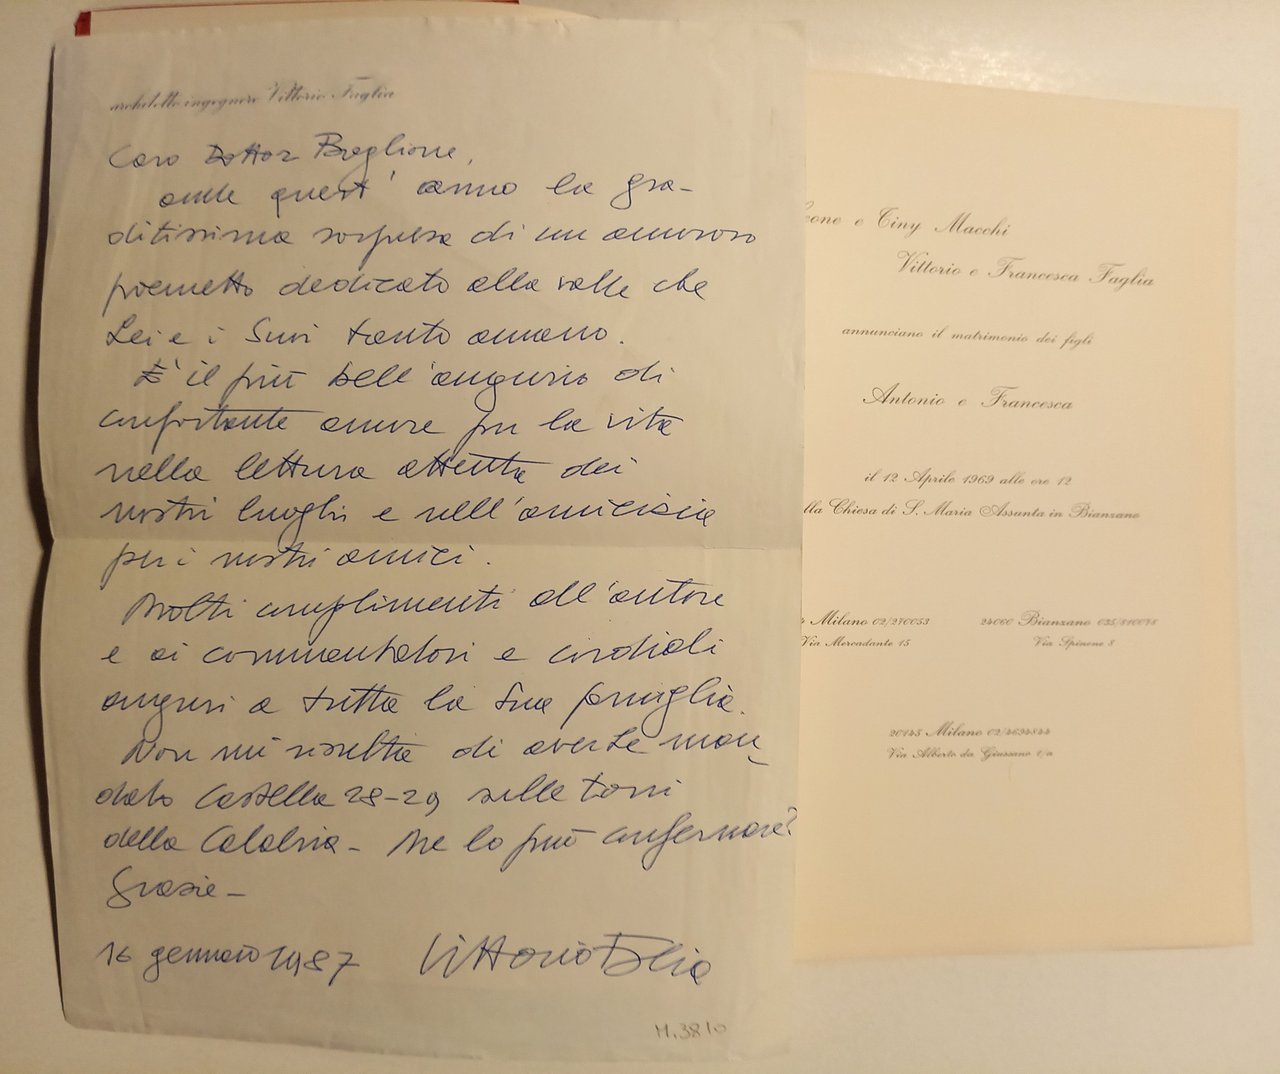 architetto ingegnere Vittorio Faglia
Caro Dottor Baglione,
anche quest' anno la gra-
ditissima sorpresa di un amoroso
poemetto dedicato alla valle che
Lei e i Suoi tanto amano.
E' il più bell'augurio di
confortante amore per la vita
nella lettura attenta dei
nostri luoghi e nell'amicizia
per i nostri amici.
Molti complimenti all'autore
e ai commentatori e cordiali
auguri a tutta la Sua famiglia.
Non mi risulta di averLe man-
dato Castella 28-29 sulle torri
della Calabria - Me lo può confermare?
Grazie -
16 gennaio 1987 Vittorio Faglia
M.3810
e Tiny Macchi
Vittorio e Francesca Faglia
annunciano il matrimonio dei figli
Antonio e Francesca
il 12 Aprile 1969 alle ore 12
lla Chiesa di S. Maria Assunta in Bianzano
Milano 02/270053
Via Mercadante 15
24060 Bianzano 035/810078
Via Spinone 8
20145 Milano 02/4694844
Via Alberto da Giussano 1/a